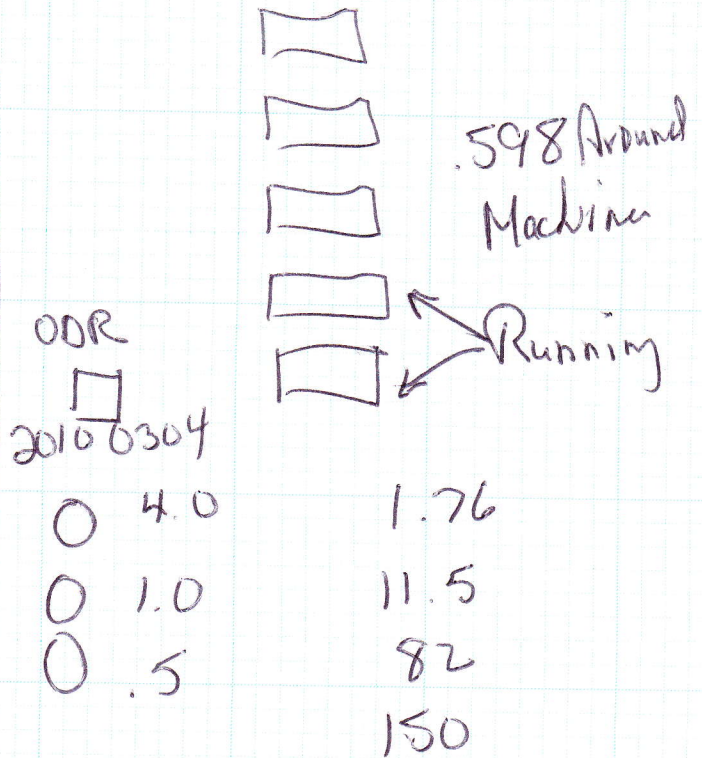 .598 Around
Machine
Running
ODR
20100304
4.0 1.76
1.0 11.5
.5 82
150